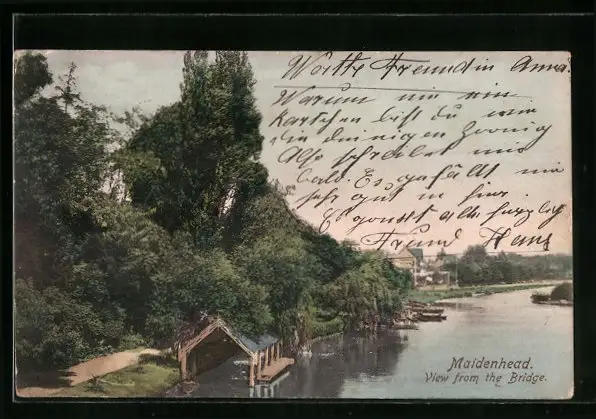 Werthe Freundin Anna.
Warum nur ein
Kärtchen bist du wie
die deinigen
Also schreibe mir
bald. Es gefällt mir
sehr gut in hier.
Es grüsst alle herzlig
Freund Hans
Maidenhead.
View from the Bridge.